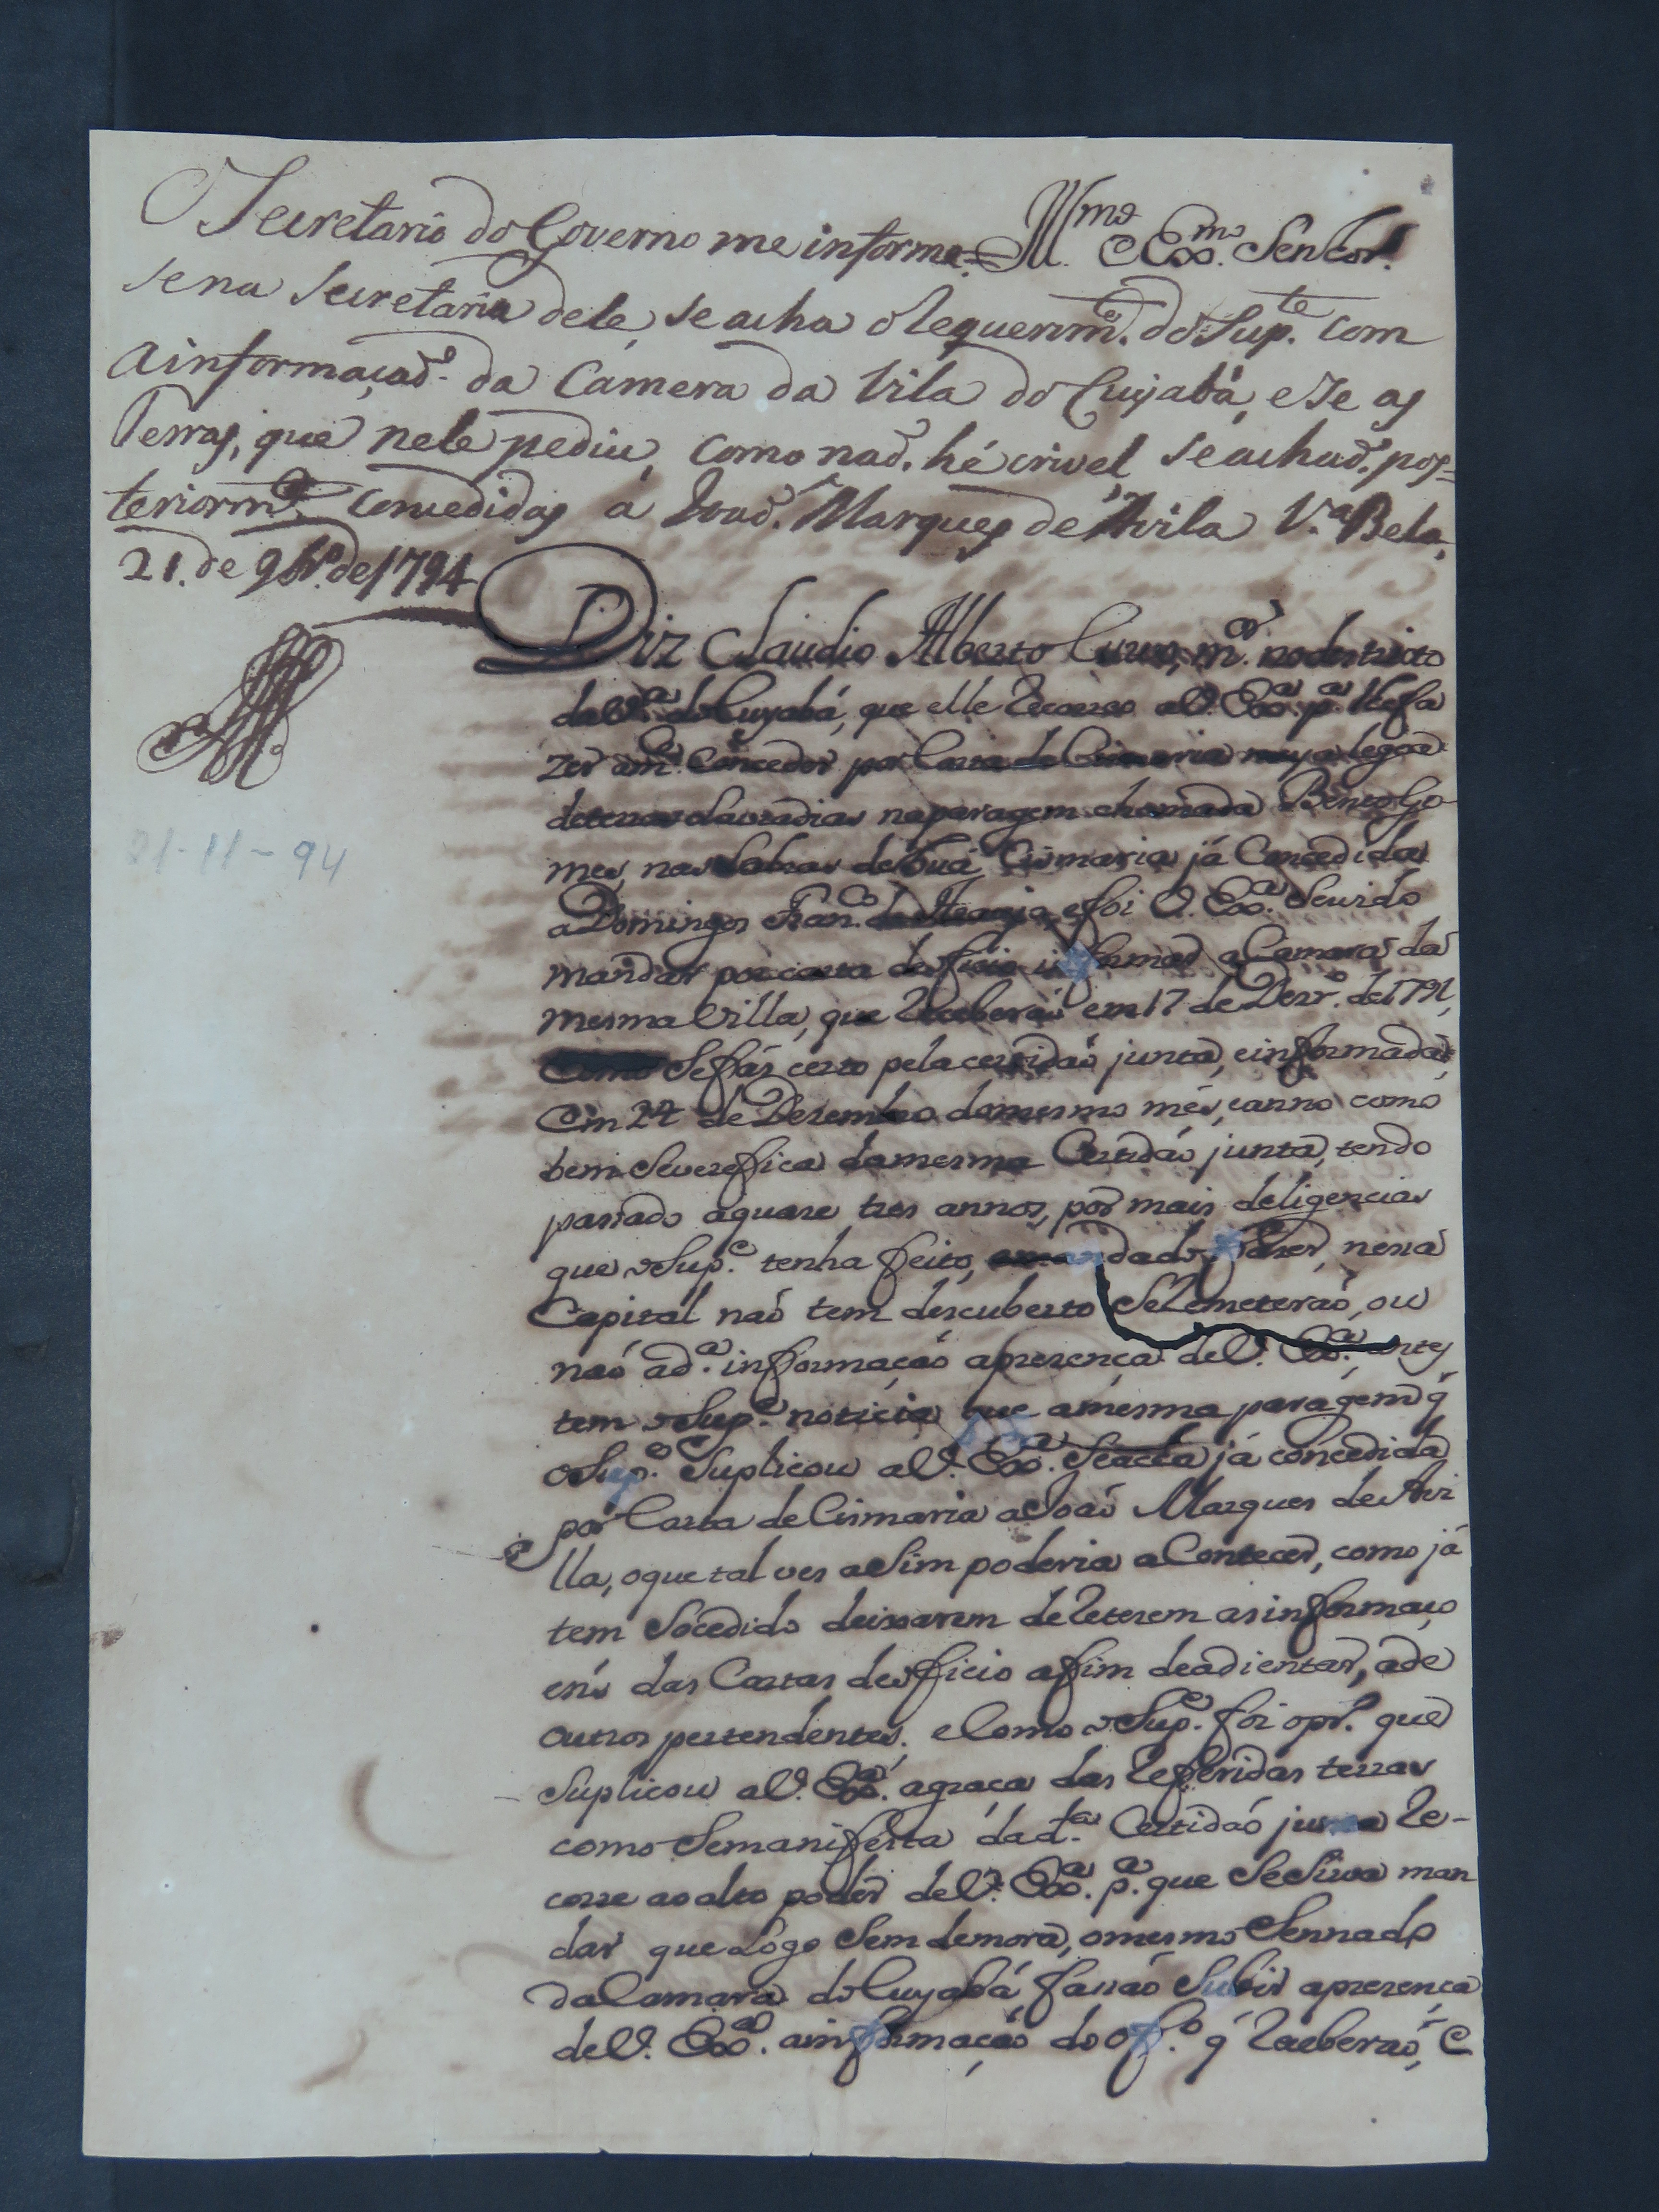 O Secretario do Governo me informe
Ill.mo e Ex.mo Senhor.
se na Secretaria dele, se acha o requerim.to do Sup.te com
a informaçaõ da Camera da Vila do Cuyabá, e se as
Terras, que nele pediu, como naõ hé crivel, se achaõ pos=
teriorm.e concedidas á Joaõ Marques de Avila V.a Bela,
21. de 9br.o de 1794
Diz Claudio Alberto m.or no destricto
da V.a do Cuyabá, que elle recorreo a V. Ex.a p.a lhe fa
zer a m.ce conceder por Carta de Cismaria meya legoa
de terras Lavradias na paragem chamada Bento Go
mes, nas Lavras de Cismaria já Concedida
a Domingos Fran.co de Araujo, e foi V. Ex.a Servido
mandar por carta de oficio informar a Camara da
mesma Villa, que receberaõ em 17 de Dezr.o de 1791,
Como Se fás certo pela certidaõ junta, e informada
Em 24 de Dezembro do mesmo més, e anno como
bem Se verefica da mesma Certidaõ junta, tendo
passado a quaze tres annos, por mais deligencias
que o Sup.e tenha feito, e mandado fazer, nessa
Capital naõ tem descuberto Se remeteraõ, ou
naõ a d.a informaçaõ a prezença de V. Ex.a antes
tem o Sup.e noticia que a mesma paragem q'
o Sup.e Suplicou a V. Ex.a Se acha já concedida
por Carta de Cismaria a Joaõ Marques de Avi
lla, o que tal ves aSim poderia aContecer, como já
tem Socedido deixarem de reterem as informaço
ens das Cartas de oficio afim de adientar, a de
outros pertendentes. e Como o Sup.e foi o pr.o que
Suplicou a V. Ex.a a graça das referidas terras
como Se manifesta da d.ta Certidaõ junta re-
corre ao alto poder de V. Ex.a p.a que Se Sirva man
dar que Logo Sem demora, o mesmo Sennado
da Camara do Cuyabá façaõ Subir a prezença
de V. Ex.a a informaçaõ do of.o q' receberaõ, e
21-11-94